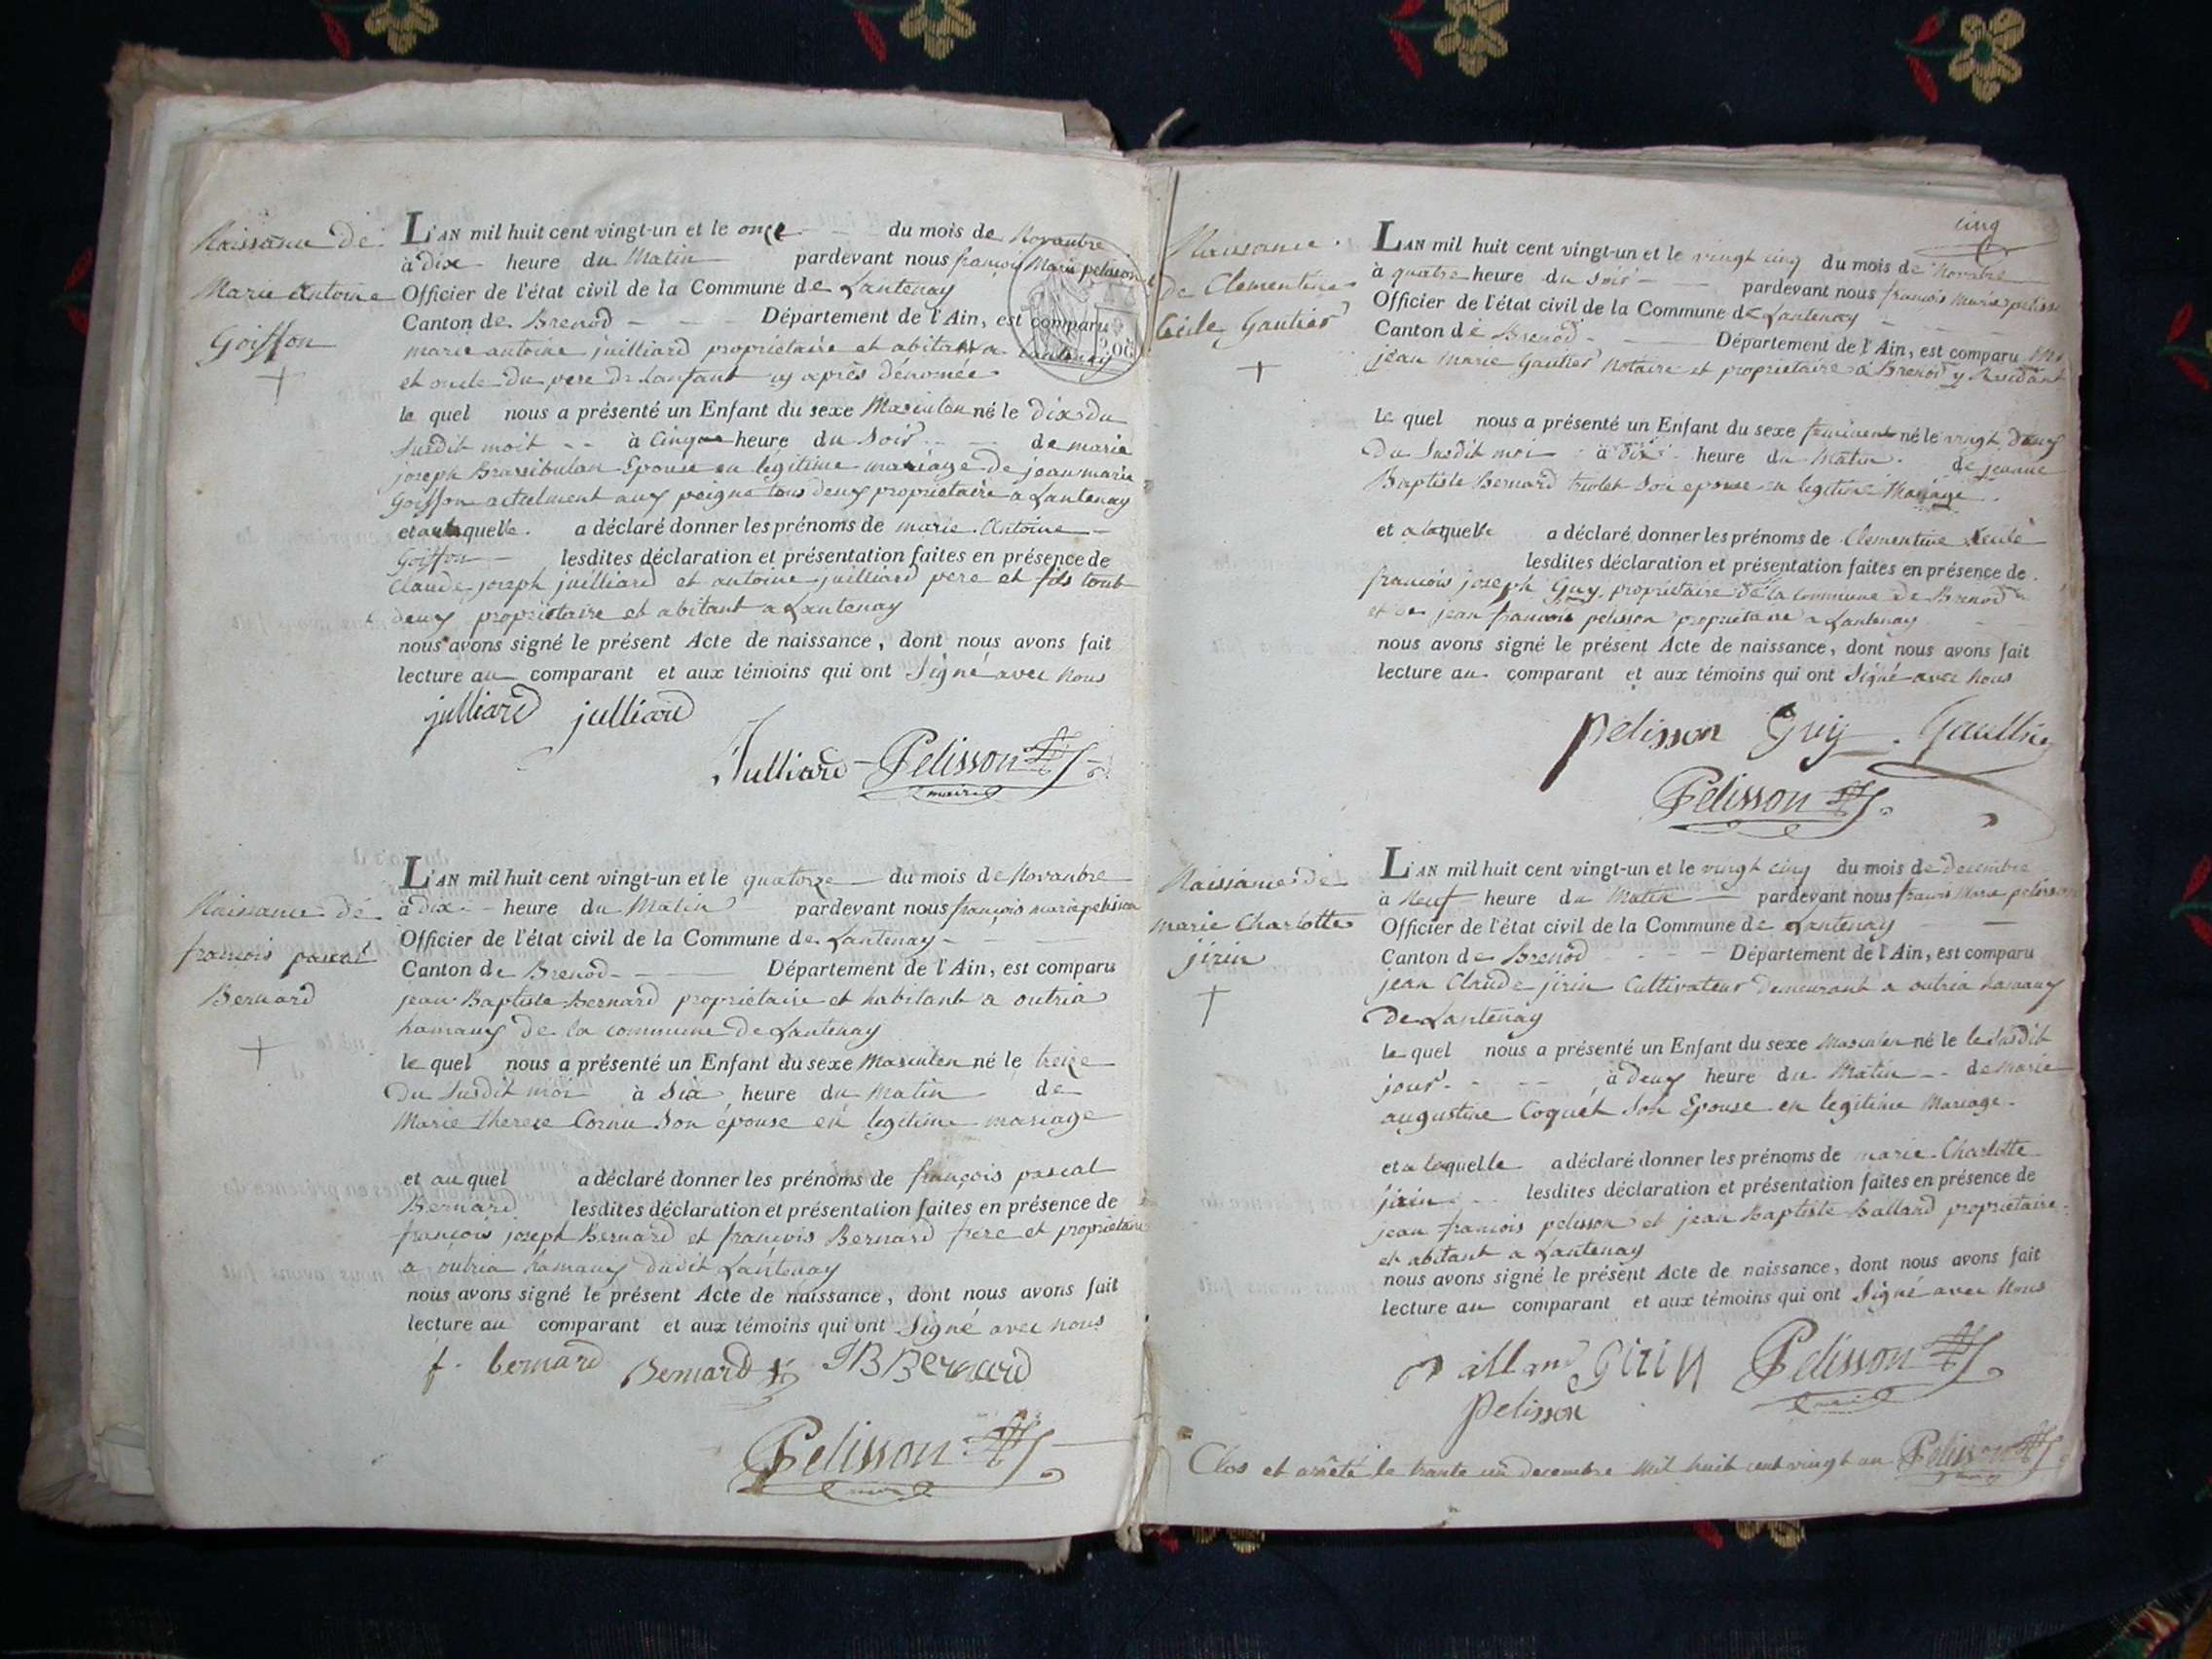 Naissance de
Marie Antoine
Goiffon
L'AN mil huit cent vingt-un et le onze du mois de Novanbre
à dix heure du Matin pardevant nous françois Marie pelisson
Officier de l'état civil de la Commune de Lantenay
Canton de Brenod Département de l'Ain, est comparu
marie antoine juilliard propriétaire et abitant a Lantenay
et oncle du pere de Lanfant cy après dénomée
le quel nous a présenté un Enfant du sexe Masculen né le dix du
susdit moit à Cinque heure du Soir de marie
joseph Epouse en légitime mariage de jean marie
Goiffon actuelment aux peigne tous deux propriétaire a Lantenay
et a laquelle a déclaré donner les prénoms de marie Antoine
Goiffon lesdites déclaration et présentation faites en présence de
Claude joseph juilliard et antoine juilliard pere et fils tout
deux propriétaire et abitant a Lantenay
nous avons signé le présent Acte de naissance, dont nous avons fait
lecture au comparant et aux témoins qui ont Signé avec Nous
julliard julliard
Julliard Pelisson
maire
Naissance de
françois pascal
Bernard
L'AN mil huit cent vingt-un et le quatorze du mois de Novanbre
à dix heure du Matin pardevant nous françois marie pelisson
Officier de l'état civil de la Commune de Lantenay
Canton de Brenod Département de l'Ain, est comparu
jean Baptiste Bernard propriétaire et habitant a outria
hamaux de la commune de Lantenay
le quel nous a présenté un Enfant du sexe Masculen né le treize
du susdit moi à Six heure du Matin de
Marie therese Cornu Son épouse en legitime mariage
et au quel a déclaré donner les prénoms de françois pascal
Bernard lesdites déclaration et présentation faites en présence de
françois joseph Bernard et françois Bernard frere et propriétaire
a outria hamaux dudit Lantenay
nous avons signé le présent Acte de naissance, dont nous avons fait
lecture au comparant et aux témoins qui ont Signé avec nous
f. bernard Bernard JB Bernard
Pelisson
cinq
Naissance
de Clementine
Cécile Gautier
L'AN mil huit cent vingt-un et le vingt cinq du mois de Novabre
à quatre heure du Soir pardevant nous françois Marie pelisson
Officier de l'état civil de la Commune de Lantenay
Canton de Brenod Département de l'Ain, est comparu
jean Marie Gautier Notaire et propriétaire a Brenod y Residant
Le quel nous a présenté un Enfant du sexe feminent né le vingt deux
du Susdit moi à dix heure du Matin de jeanne
Baptiste Bernard triolet Son epouse en legitime Mariage
et a laquelle a déclaré donner les prénoms de Clementine
lesdites déclaration et présentation faites en présence de
françois joseph Guy propriétaire de la commune de Brenod
et de jean francois pelisson propriétaire a Lantenay
nous avons signé le présent Acte de naissance, dont nous avons fait
lecture au comparant et aux témoins qui ont Signé avec Nous
pelisson Guy Gaultier
Pelisson
Naissance de
marie Charlotte
jirin
L'AN mil huit cent vingt-un et le vingt cinq du mois de decembre
à Neuf heure du Matin pardevant nous francois Marie pelisson
Officier de l'état civil de la Commune de Lantenay
Canton de Brenod Département de l'Ain, est comparu
jean Claude jirin Cultivateur demeurant a outria hamaux
de Lantenay
le quel nous a présenté un Enfant du sexe Masculen né le le Susdit
jour à deux heure du Matin de Marie
augustine Coquet Son Epouse en legitime Mariage
et a laquelle a déclaré donner les prénoms de marie Charlotte
jirin lesdites déclaration et présentation faites en présence de
jean francois pelisson et jean Baptiste Balland propriétaire
et abitant a Lantenay
nous avons signé le présent Acte de naissance, dont nous avons fait
lecture au comparant et aux témoins qui ont Signé avec Nous
Girin Pelisson
pelisson
Clos et arrêté le trante un decembre mil huit cent vingt un Pelisson